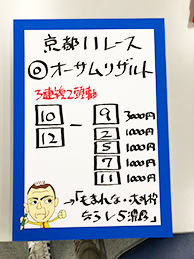 京都11レース
◎オーサムリザルト
3連複2頭軸
10 - 9 3000円
12 2 1000円
5 1000円
7 1000円
11 1000円